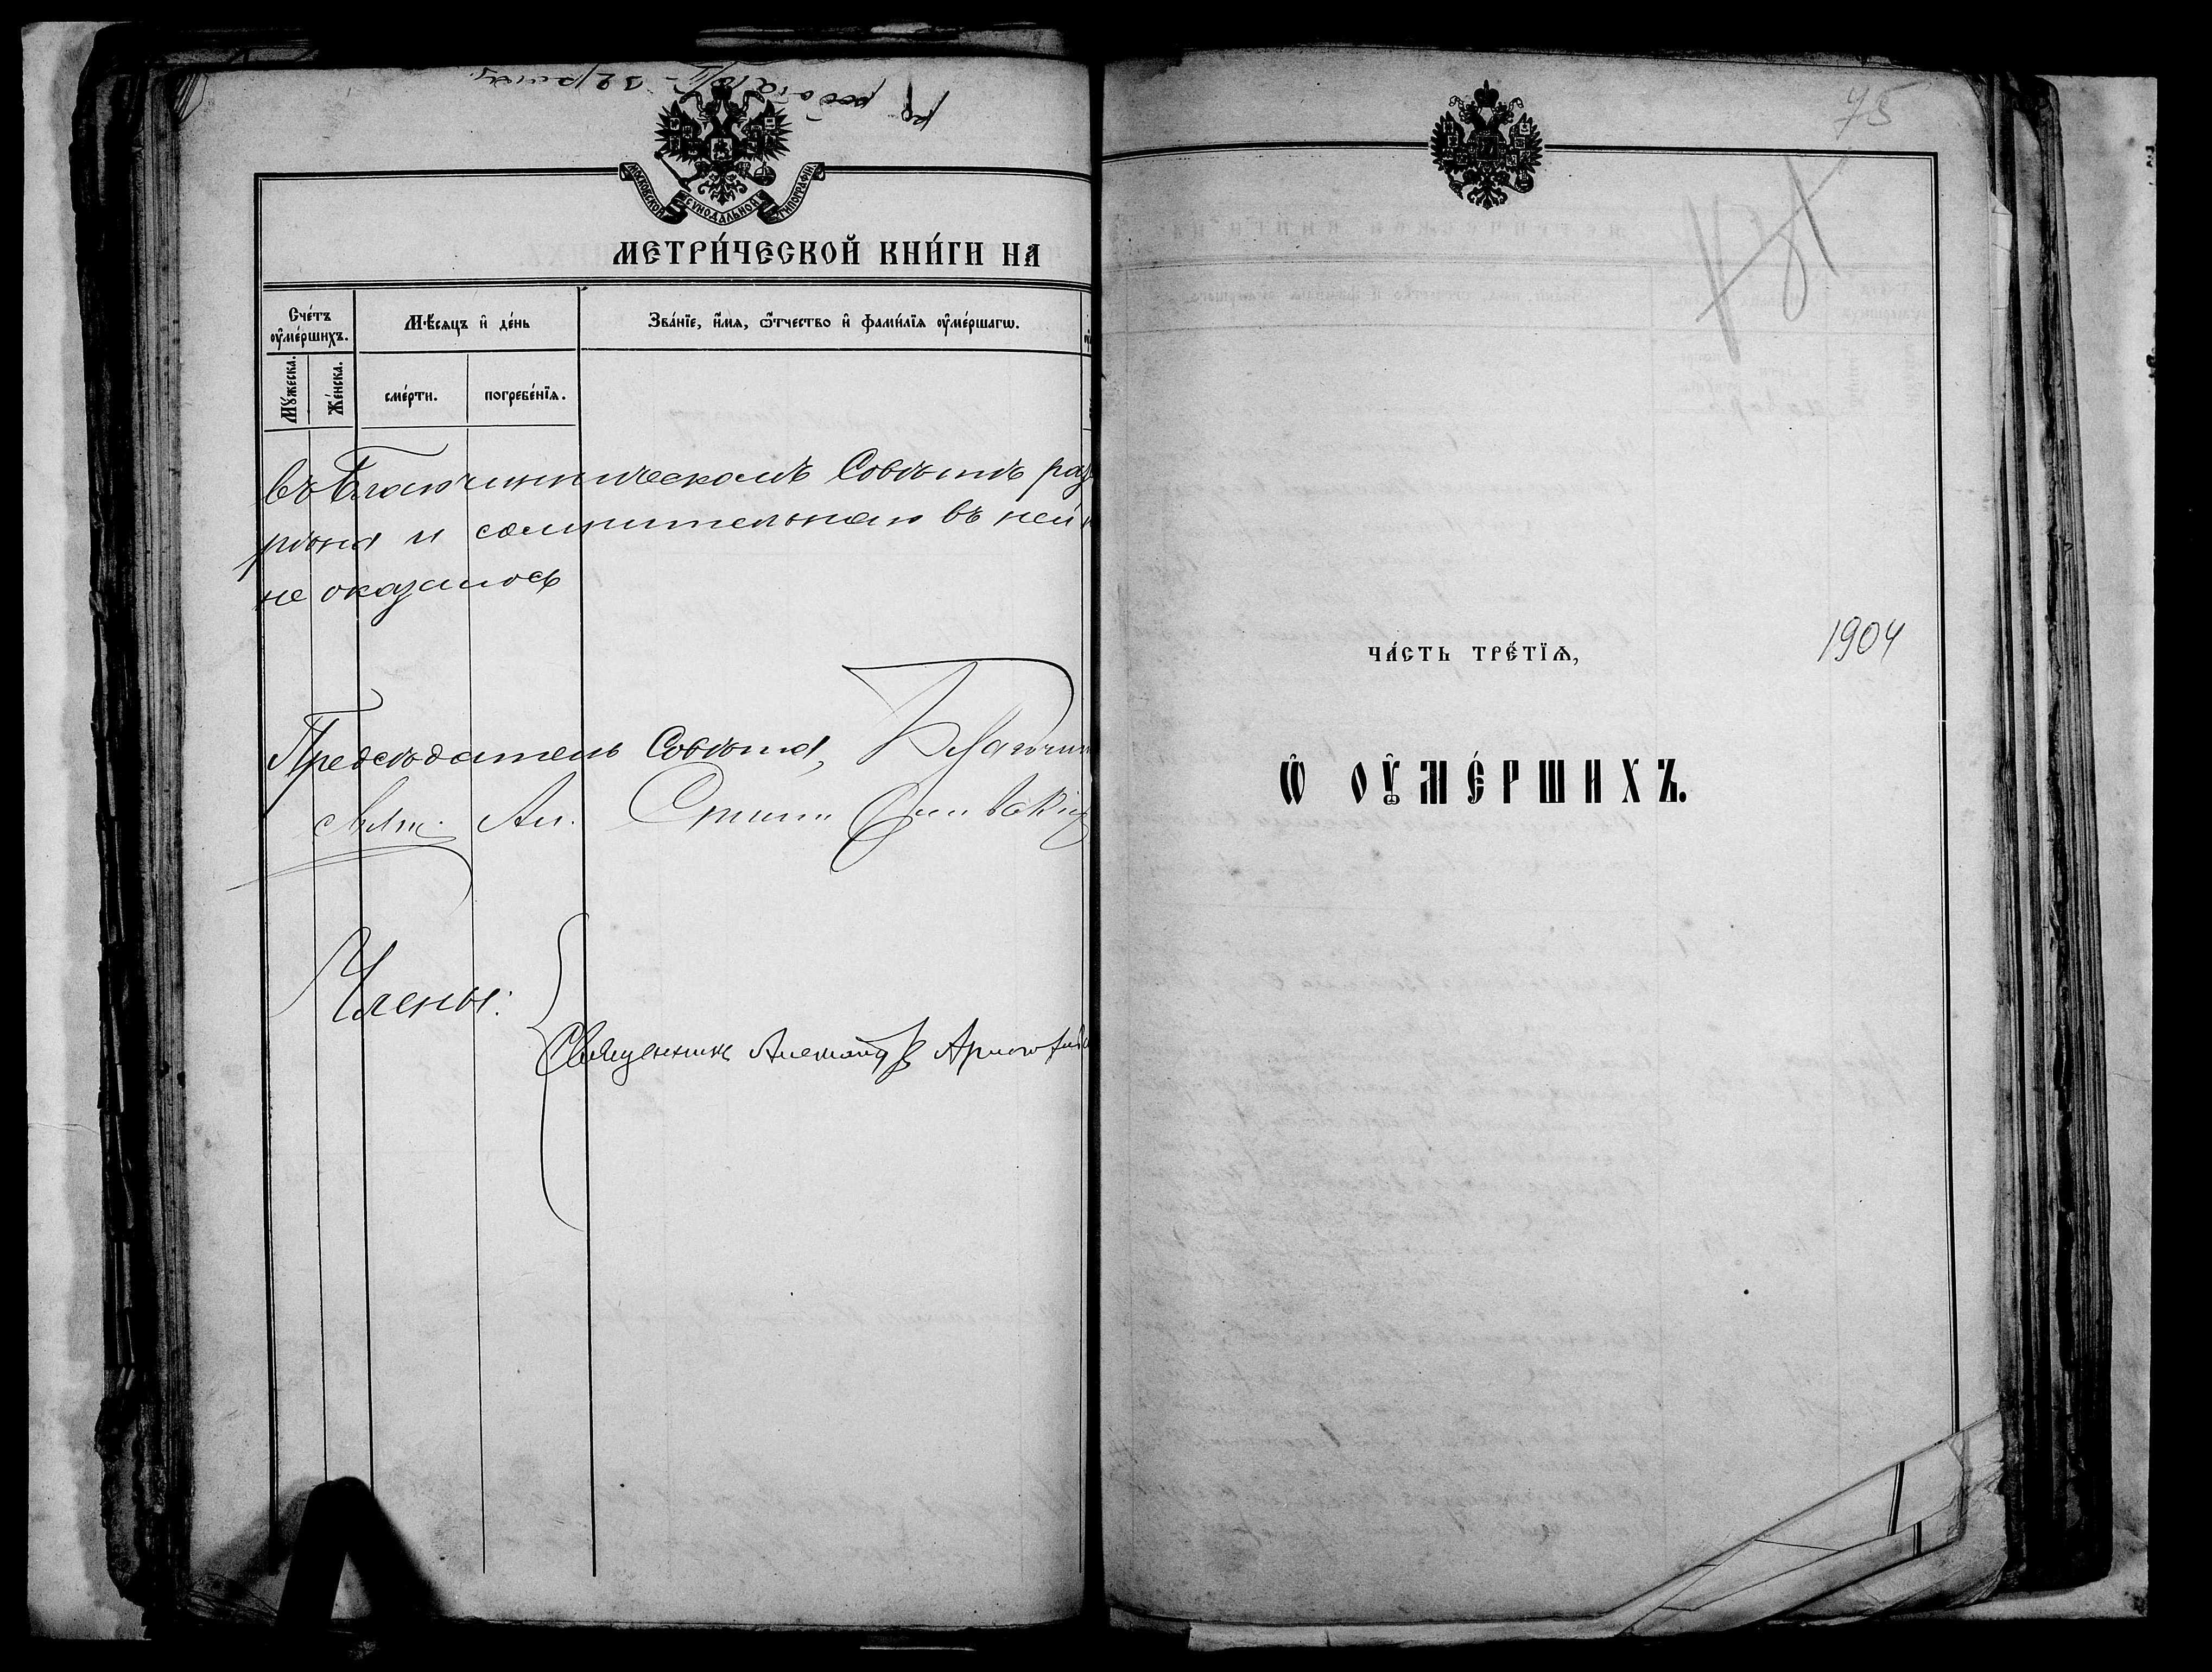 МОСКОВСКОЙ СѴНОДАЛЬНОЙ ТИПОГРАФІИ
МЕТРИ́ЧЕСКОЙ КНИ́ГИ НА
Сче́тъ ᲂу҆ме́ршихъ.
Мѣ́сяцъ и҆ де́нь
Зва́нїе, и҆́мя, ѻ҆́тчество и҆ фами́лїя ᲂу҆ме́ршагѡ.
Мꙋ́жеска.
Же́нска.
сме́рти.
погребе́нїя.
въ Благочинническомъ Совѣтѣ
рѣна и сомнительнаго въ ней
не оказалось
Предсѣдатель Совѣта,
Свящ.
Члены:
Священникъ Александръ
75
ЧА́СТЬ ТРЕ́ТЇѦ,
1904
Ѡ҆ ОУ҆МЕ́РШИХЪ.